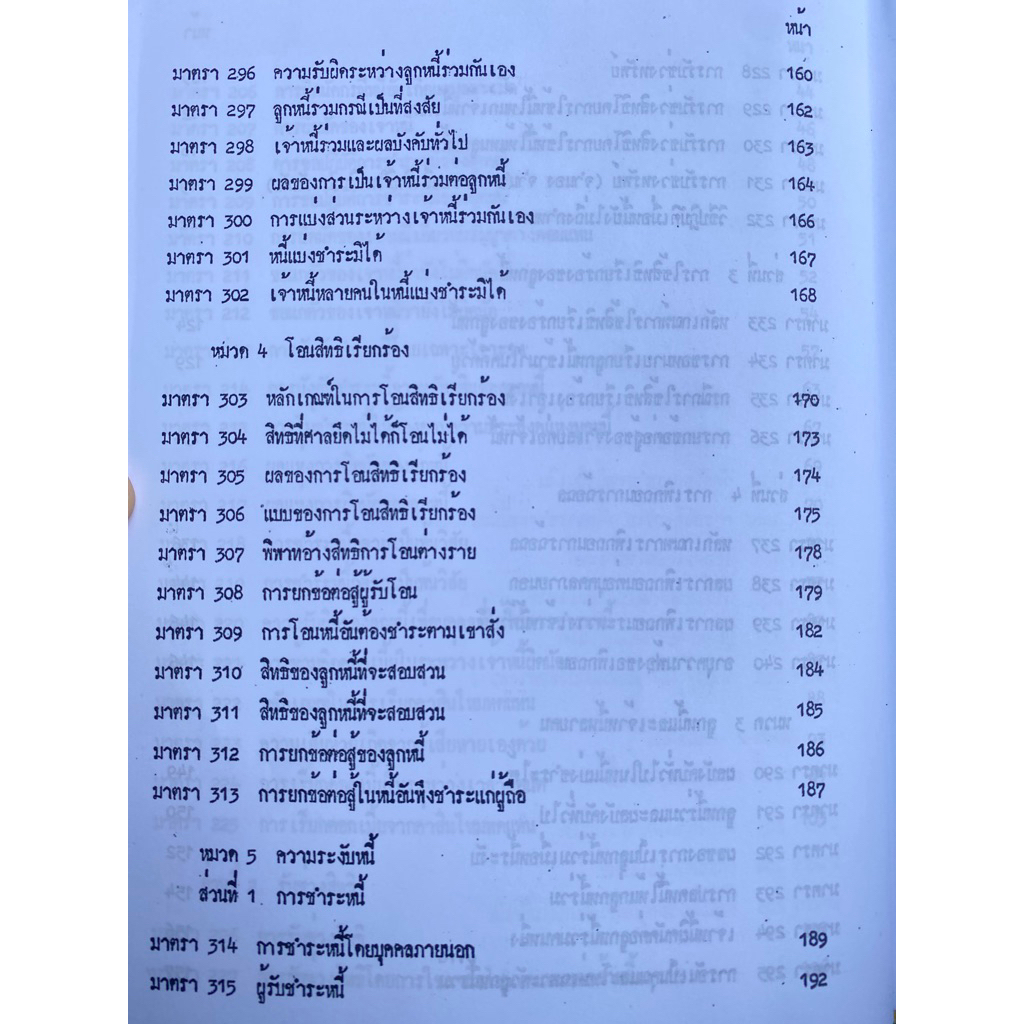 หน้า
มาตรา 296 ความรับผิดระหว่างลูกหนี้ร่วมกันเอง 160
มาตรา 297 ลูกหนี้ร่วมกรณีเป็นที่สงสัย 162
มาตรา 298 เจ้าหนี้ร่วมและผลบังคับทั่วไป 163
มาตรา 299 ผลของการเป็นเจ้าหนี้ร่วมต่อลูกหนี้ 164
มาตรา 300 การแบ่งส่วนระหว่างเจ้าหนี้ร่วมกันเอง 166
มาตรา 301 หนี้แบ่งชำระมิได้ 167
มาตรา 302 เจ้าหนี้หลายคนในหนี้แบ่งชำระมิได้ 168
หมวด 4 โอนสิทธิเรียกร้อง
มาตรา 303 หลักเกณฑ์ในการโอนสิทธิเรียกร้อง 170
มาตรา 304 สิทธิที่ศาลยึดไม่ได้ก็โอนไม่ได้ 173
มาตรา 305 ผลของการโอนสิทธิเรียกร้อง 174
มาตรา 306 แบบของการโอนสิทธิเรียกร้อง 175
มาตรา 307 พิพาทอ้างสิทธิการโอนต่างราย 178
มาตรา 308 การยกข้อต่อสู้ผู้รับโอน 179
มาตรา 309 การโอนหนี้อันต้องชำระตามเขาสั่ง 182
มาตรา 310 สิทธิของลูกหนี้ที่จะสอบสวน 184
มาตรา 311 สิทธิของลูกหนี้ที่จะสอบสวน 185
มาตรา 312 การยกข้อต่อสู้ของลูกหนี้ 186
มาตรา 313 การยกข้อต่อสู้ในหนี้อันพึงชำระแก่ผู้ถือ 187
หมวด 5 ความระงับหนี้
ส่วนที่ 1 การชำระหนี้
มาตรา 314 การชำระหนี้โดยบุคคลภายนอก 189
มาตรา 315 ผู้รับชำระหนี้ 192